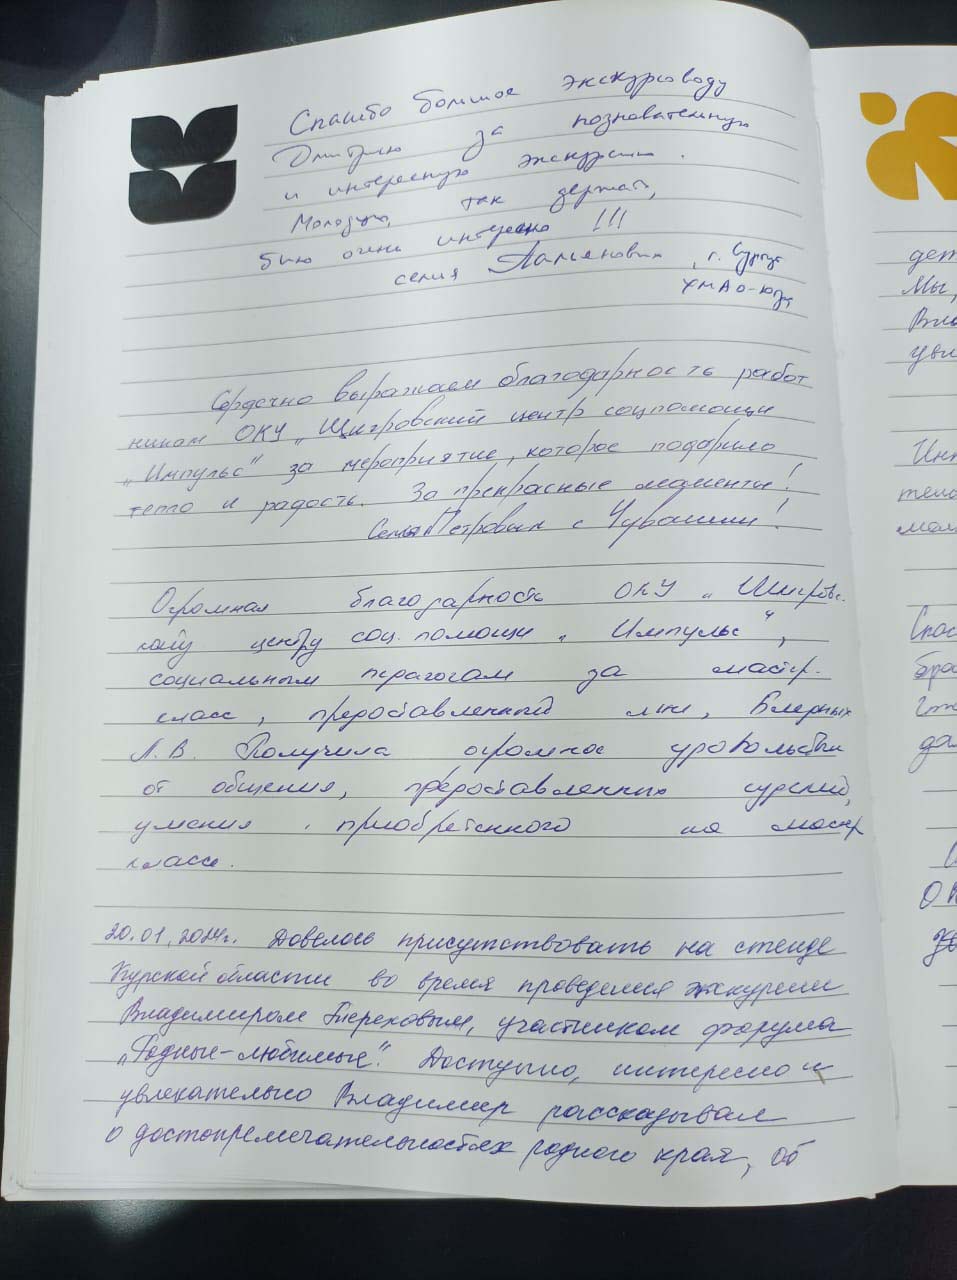 Спасибо большое экскурсоводу
Дмитрию за познавательную
и интересную экскурсию.
Молодцы, так держать,
было очень интересно !!!
семья , г. Сургут
ХМАО-Югра
Сердечно выражаем благодарность работ
никам ОКУ „Щигровский центр соцпомощи
„Импульс" за мероприятие, которое подарило
тепло и радость. За прекрасные моменты!
Семья Петровых с Чувашии!
Огромная благодарность ОКУ „Щигровс-
кому центру соц. помощи „Импульс",
социальным педагогам за мастер-
класс, предоставленный мне,
Л.В. Получила огромное удовольствие
от общения, предоставленных
умения приобретенного на мастер
классе.
20.01.2024г. Довелось присутствовать на стенде
Курской области во время проведения экскурсии
Владимиром Тереховым, участником форума
„Родные-любимые". Доступно, интересно и
увлекательно Владимир рассказывал
о достопремечательностях родного края, об
дет
Мы,
Вла
увл
Инт
тело
мал
Спас
бра
да